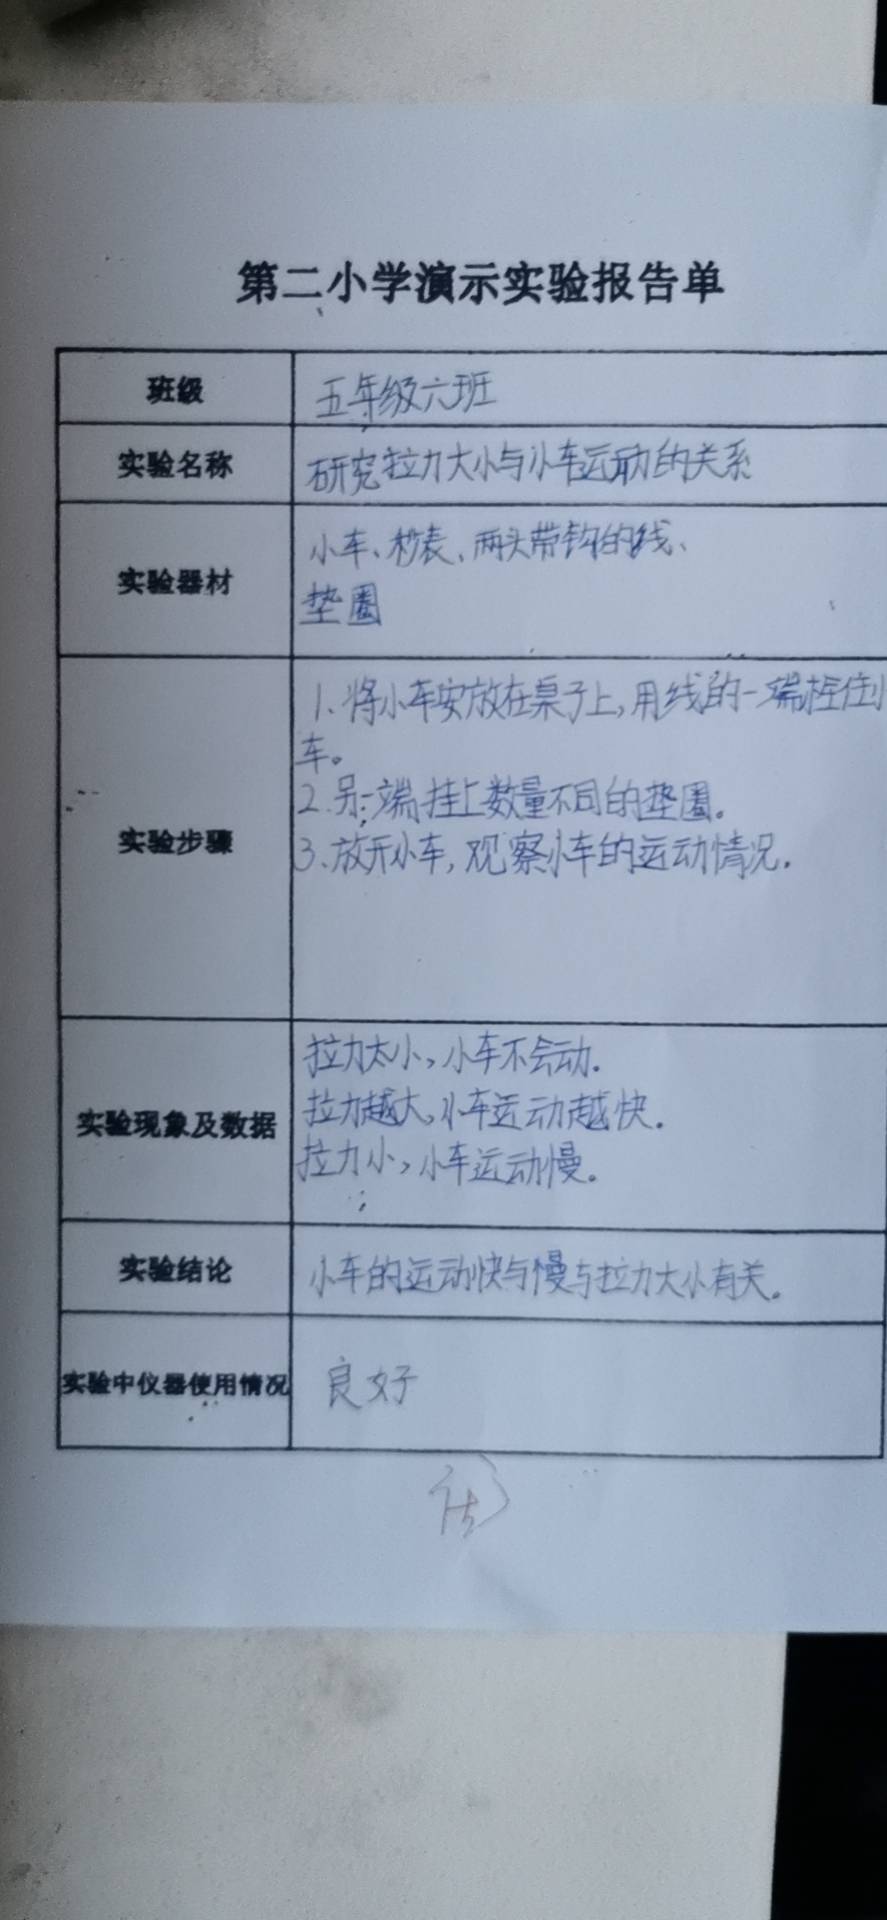 第二小学演示实验报告单
班级 五年级六班
实验名称 研究拉力大小与小车运动的关系
实验器材 小车、秒表、两头带钩的线、
垫圈
实验步骤 1、将小车安放在桌子上,用线的一端栓住小
车。
2、另一端挂上数量不同的垫圈。
3、放开小车,观察小车的运动情况.
实验现象及数据 拉力太小,小车不会动.
拉力越大,小车运动越快.
拉力小,小车运动慢。
实验结论 小车的运动快与慢与拉力大小有关。
实验中仪器使用情况 良好